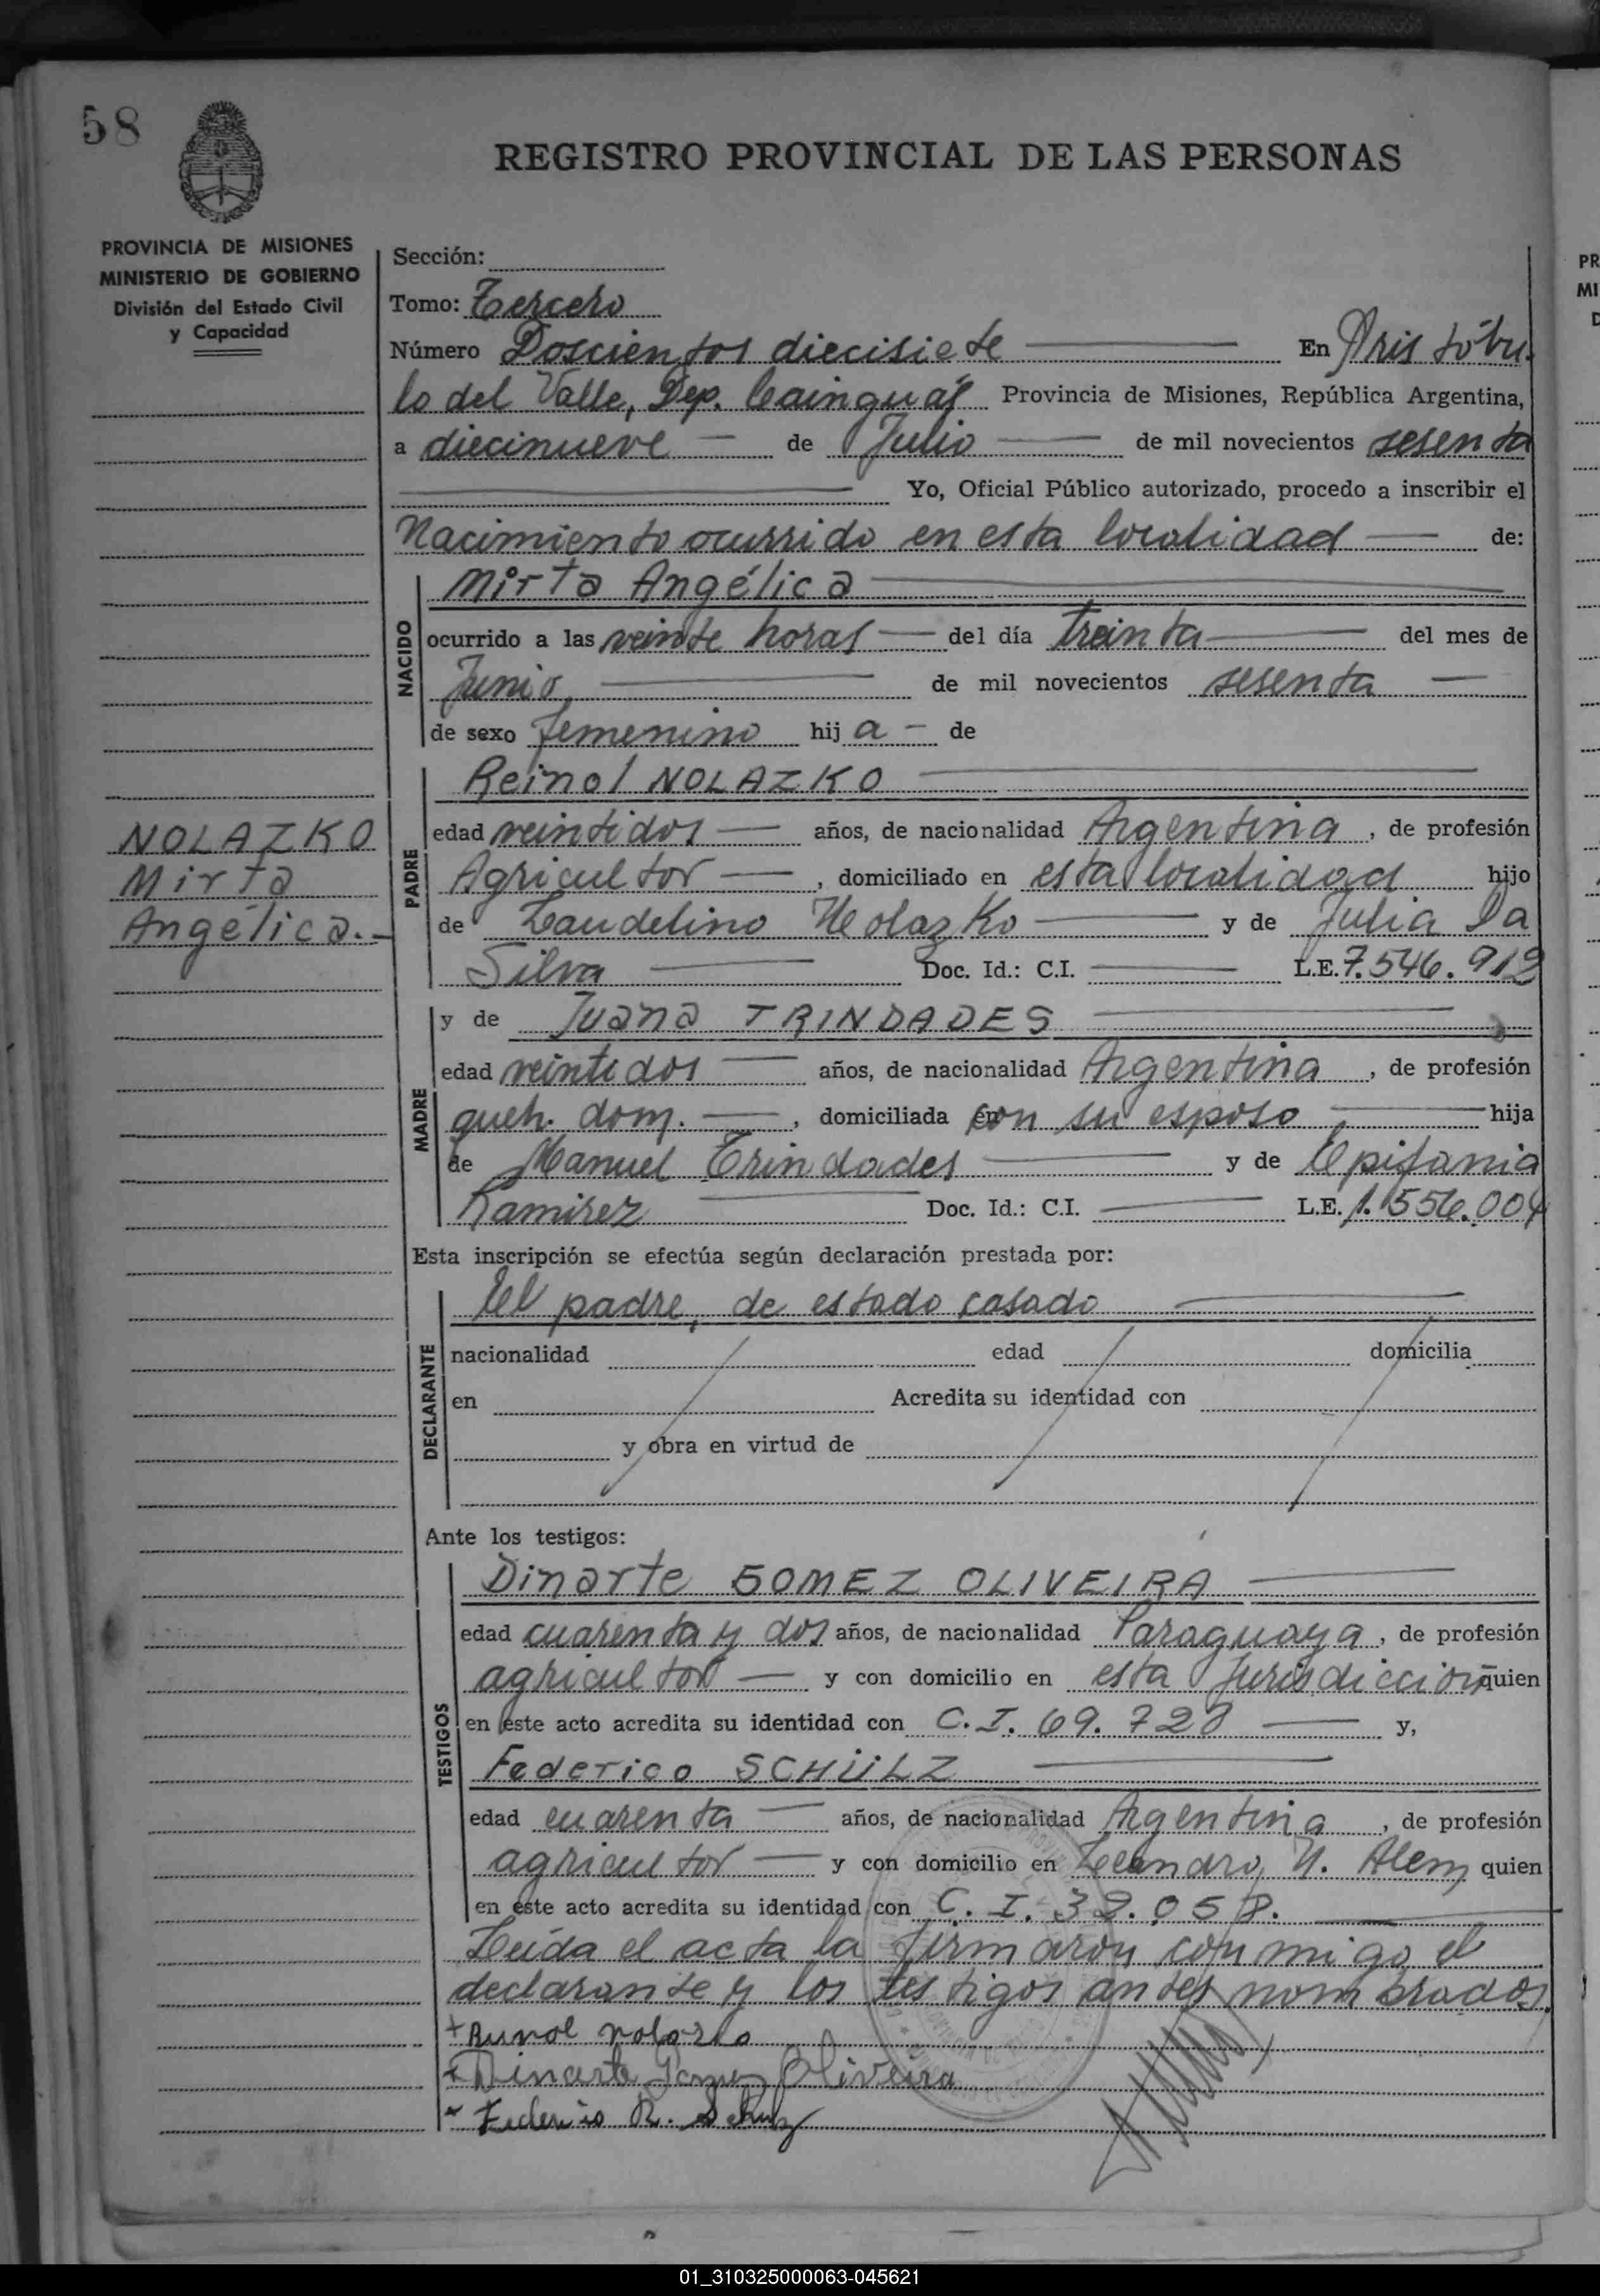 58
REGISTRO PROVINCIAL DE LAS PERSONAS
PROVINCIA DE MISIONES
MINISTERIO DE GOBIERNO
División del Estado Civil
y Capacidad
Sección:
Tomo: Tercero
Número Doscientos diecisiete En Aristóbu-
lo del Valle, Dep. Cainguás Provincia de Misiones, República Argentina,
a diecinueve de Julio de mil novecientos sesenta
Yo, Oficial Público autorizado, procedo a inscribir el
Nacimiento ocurrido en esta localidad de:
NACIDO
Mirta Angélica
ocurrido a las veinte horas del día treinta del mes de
Junio de mil novecientos sesenta
de sexo femenino hij a de
PADRE
Reinol NOLAZKO
NOLAZKO
Mirta
Angélica.-
edad veintidos años, de nacionalidad Argentina, de profesión
Agricultor, domiciliado en esta localidad hijo
de Laudelino Nolazko y de Julia Da
Silva Doc. Id.: C.I. L.E. 7.546.912
MADRE
y de Juana TRINDADES
edad veintidos años, de nacionalidad Argentina, de profesión
queh. dom., domiciliada con su esposo hija
de Manuel Trindades y de Epifania
Ramirez Doc. Id.: C.I. L.E. 1.556.004
Esta inscripción se efectúa según declaración prestada por:
DECLARANTE
El padre, de estado casado
nacionalidad edad domicilia
en Acredita su identidad con
y obra en virtud de
Ante los testigos:
TESTIGOS
Dinarte GOMEZ OLIVEIRA
edad cuarenta y dos años, de nacionalidad Paraguaya, de profesión
agricultor y con domicilio en esta Jurisdiccion quien
en este acto acredita su identidad con C.I. 69.728 y,
Federico SCHÜLZ
edad cuarenta años, de nacionalidad Argentina, de profesión
agricultor y con domicilio en Leandro N. Alem quien
en este acto acredita su identidad con C.I. 32.058.
Leída el acta la firmaron conmigo el
declarante y los testigos antes nombrados.
Dinarte Gomez Oliveira
Federico R. Schulz
01_310325000063-045621